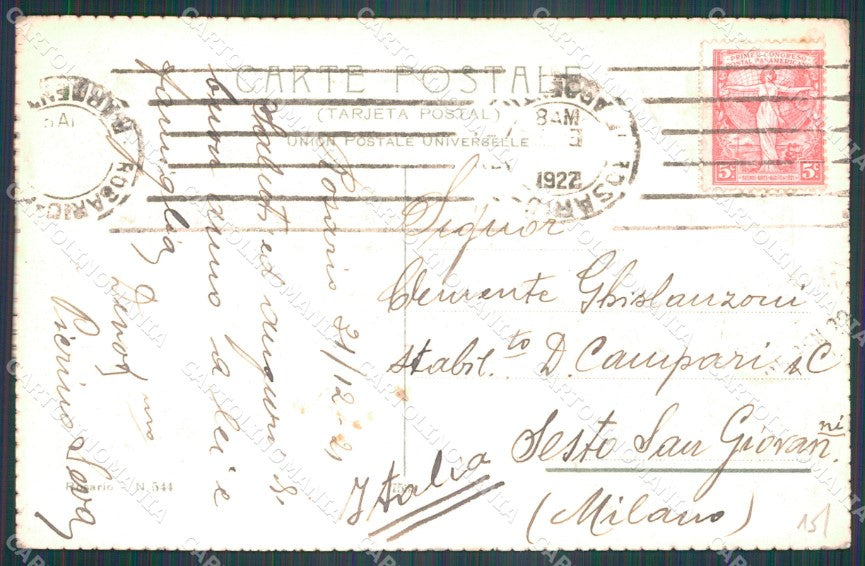 CARTE POSTALE
(TARJETA POSTAL)
UNION POSTALE UNIVERSELLE
PRIMER CONGRESO
POSTAL PANAMERICANO
5c 5c
8 AM
1922
ROSARIO
ROSARIO
Rosario 21/12-21
Saluti ed auguri di
buon anno a Lei e
famiglia
Devot mo
Pierino
Signor
Clemente Ghislanzoni
Stabil.to D. Campari & C
Sesto San Giovanni
(Milano)
Italia
Rosario - N. 544
15/
CARTOLINOMANIA